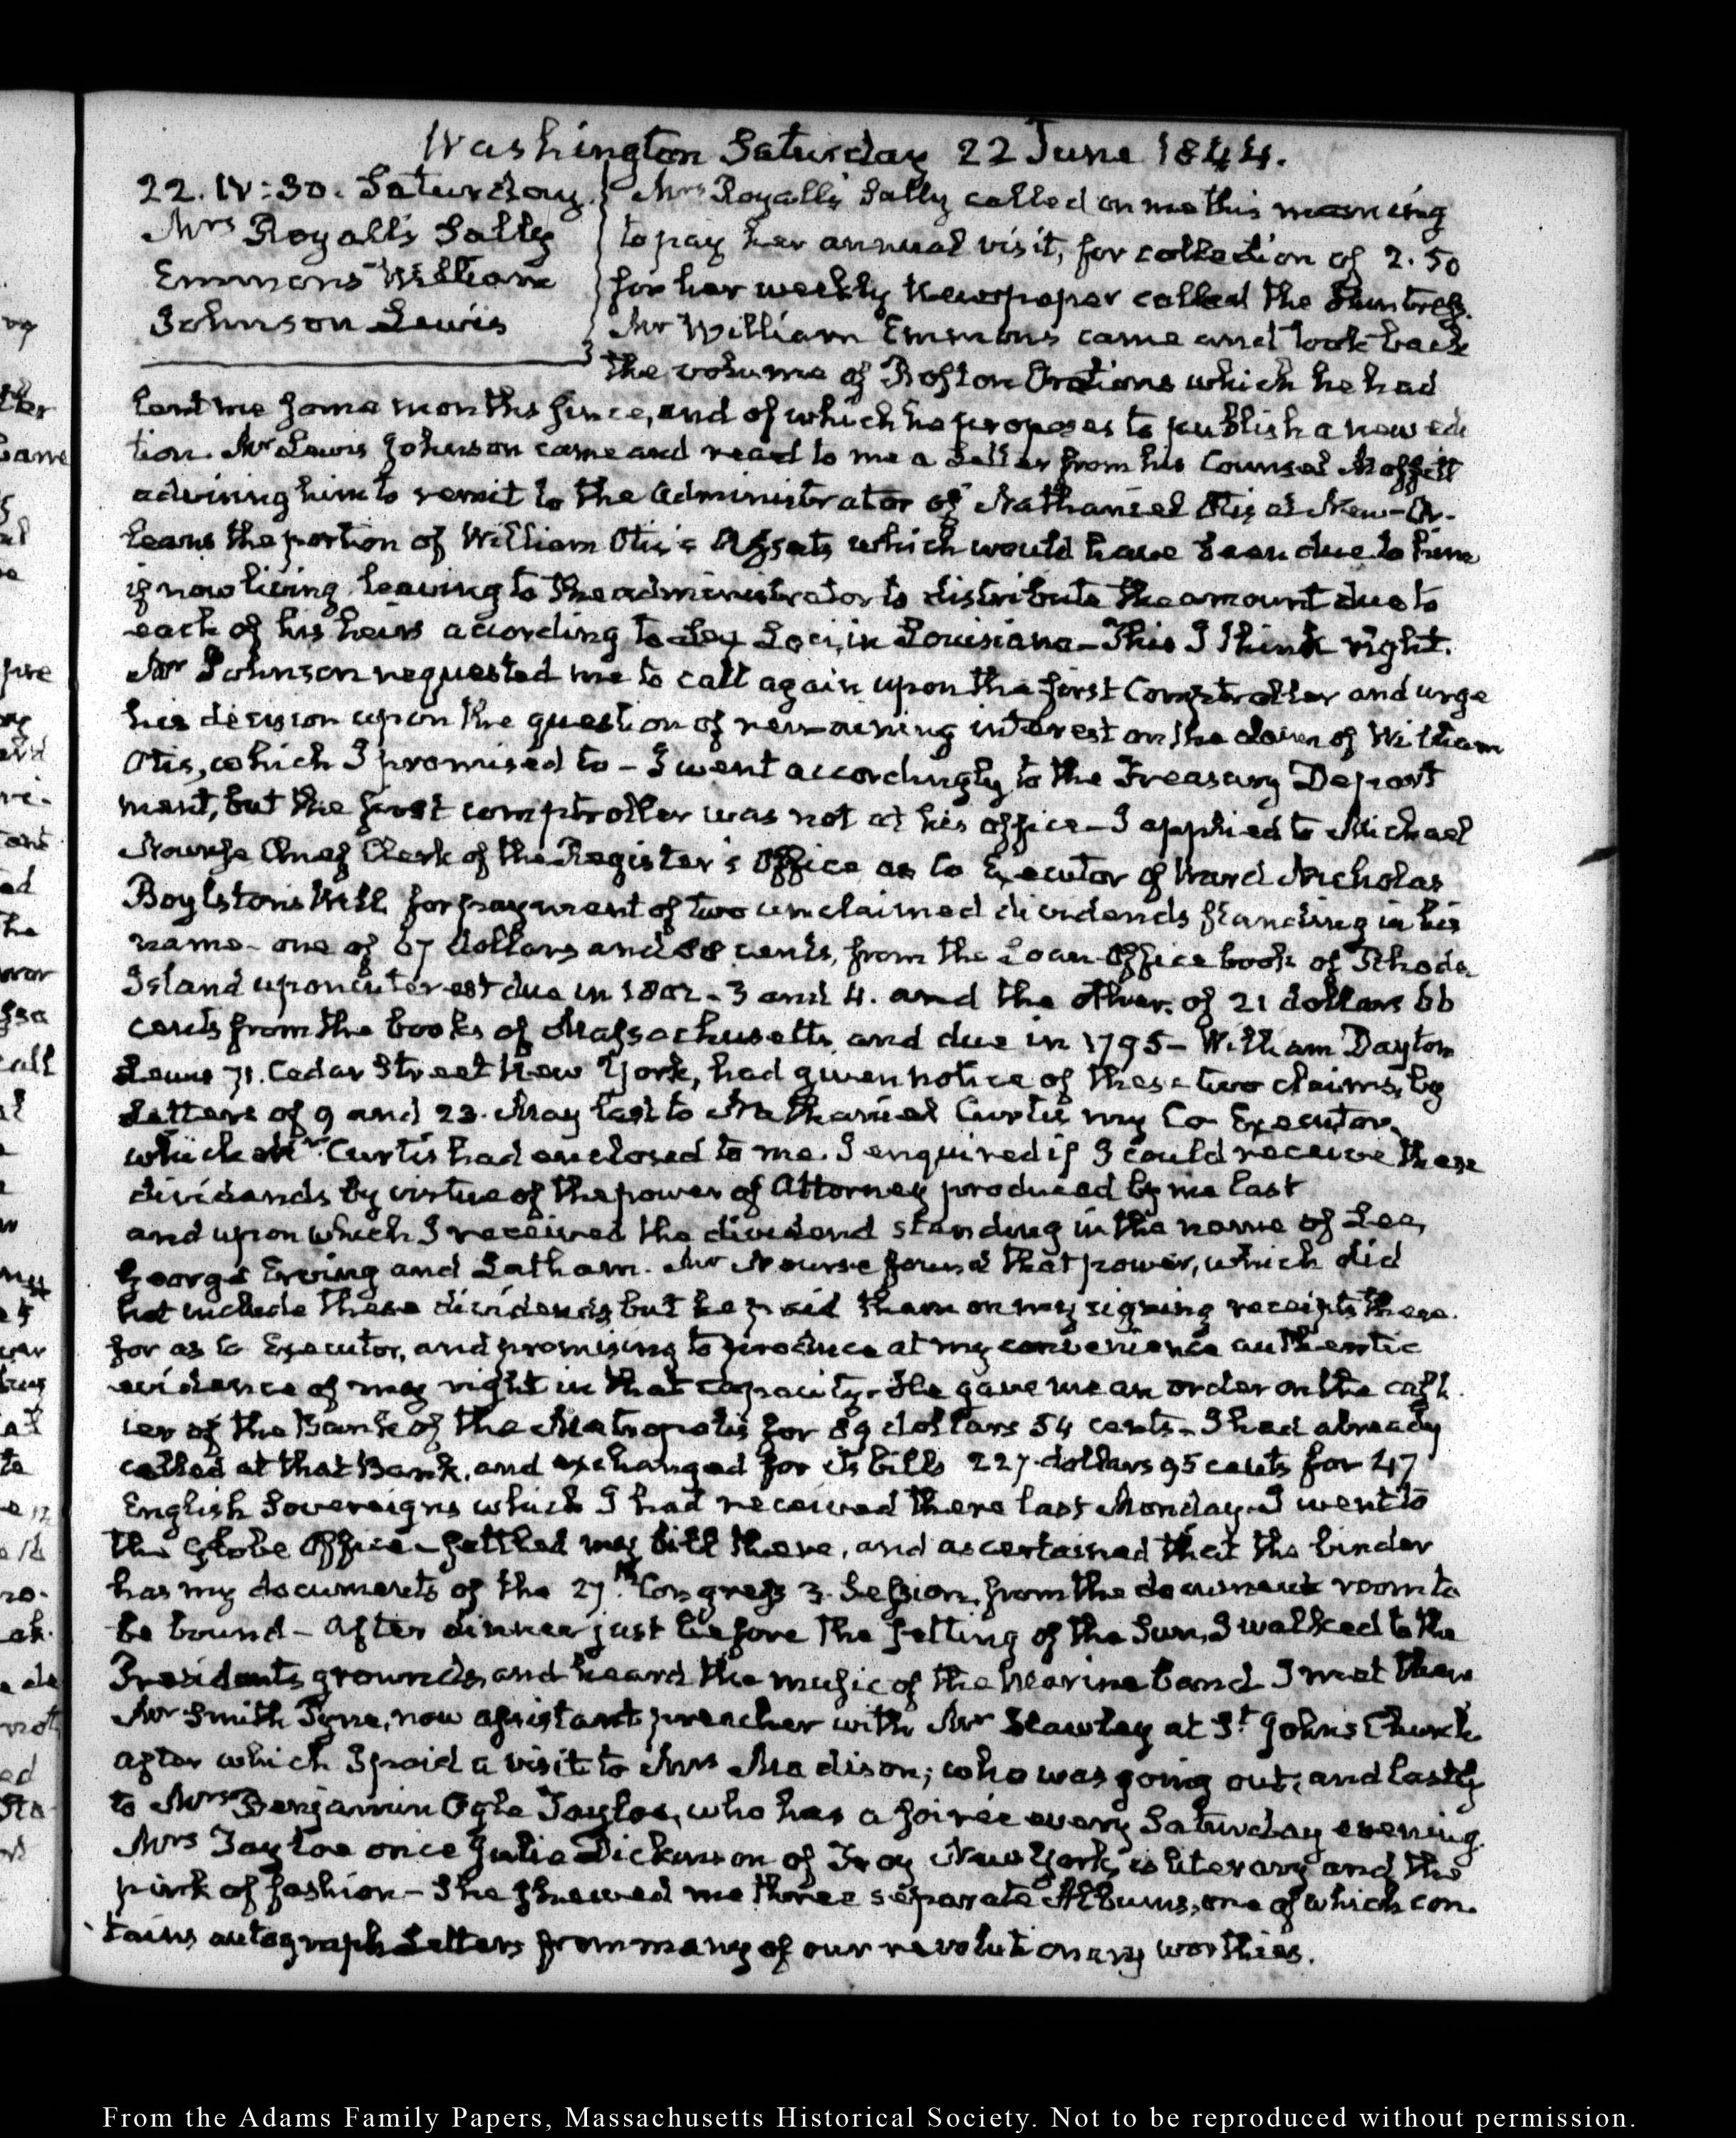 Washington Saturday 22 June 1844.
22. IV:30. Saturday.
Mrs Royall's Sally
Emmons William
Johnson Lewis
Mrs Royall's Sally called on me this morning
to pay her annual visit, for collection of 2.50
for her weekly Newspaper called the Huntress.
Mr William Emmons came and took back
the volume of Boston Orations which he had
lent me some months since, and of which he proposes to publish a new edi
tion. Mr Lewis Johnson came and read to me a Letter from his Counsel Moffitt
advising him to remit to the Administrator of Nathaniel Otis at New-Or-
leans the portion of William Otis's Assets, which would have been due to him
if now living leaving to the administrator to distribute the amount due to
each of his heirs according to Lex Loci, in Louisiana—This I think right.
Mr Johnson requested me to call again upon the first Comptroller and urge
his decision upon the question of remaining interest on the claim of William
Otis, which I promised to—I went accordingly to the Treasury Depart
ment, but the first comptroller was not at his office—I applied to Michael
Nourse Chief Clerk of the Register's Office as Co Executor of Ward Nicholas
Boylston's Will for payment of two unclaimed dividends standing in his
name—one of 67 dollars and 88 cents, from the Loan-Office book of Rhode
Island upon interest due in 1802-3 and 4. and the other, of 21 dollars 66
cents from the books of Massachusetts, and due in 1795—William Dayton
71. Cedar Street New York, had given notice of these two claims, by
Letters of 9 and 23. May last to Nathaniel Curtis my Co-Executor,
which Mr Curtis had enclosed to me. I enquired if I could receive these
dividends by virtue of the power of Attorney produced by me last
and upon which I received the dividend standing in the name of Lee,
George Erving and Latham. Mr Nourse found that power, which did
not include these dividends but he paid them on my signing receipts there-
for as Co Executor, and promising to produce at my convenience authentic
evidence of my right in that capacity. He gave me an order on the cash-
ier of the Bank of the Metropolis for 89 dollars 54 cents—I had already
called at that Bank, and exchanged for its bills 227 dollars 95 cents for 47
English Sovereigns which I had received there last Monday—I went to
the Globe Office—settled my bill there, and ascertained that the binder
has my documents of the 27.th Congress 3. Session, from the document room to
be bound—After dinner just before the setting of the Sun, I walked to the
President's grounds, and heard the music of the Marine band. I met there
Mr Smith Pyne, now assistant preacher with Mr Hawley at St. Johns Church
after which I paid a visit to Mrs Madison; who was going out; and lastly
to Mrs Benjamin Ogle Tayloe, who has a soirée every Saturday evening.
Mrs Tayloe once Julia Dickinson of Troy New York, is literary and the
pink of fashion—She shewed me three separate Albums, one of which con-
tains autograph Letters from many of our revolutionary worthies.
From the Adams Family Papers, Massachusetts Historical Society. Not to be reproduced without permission.